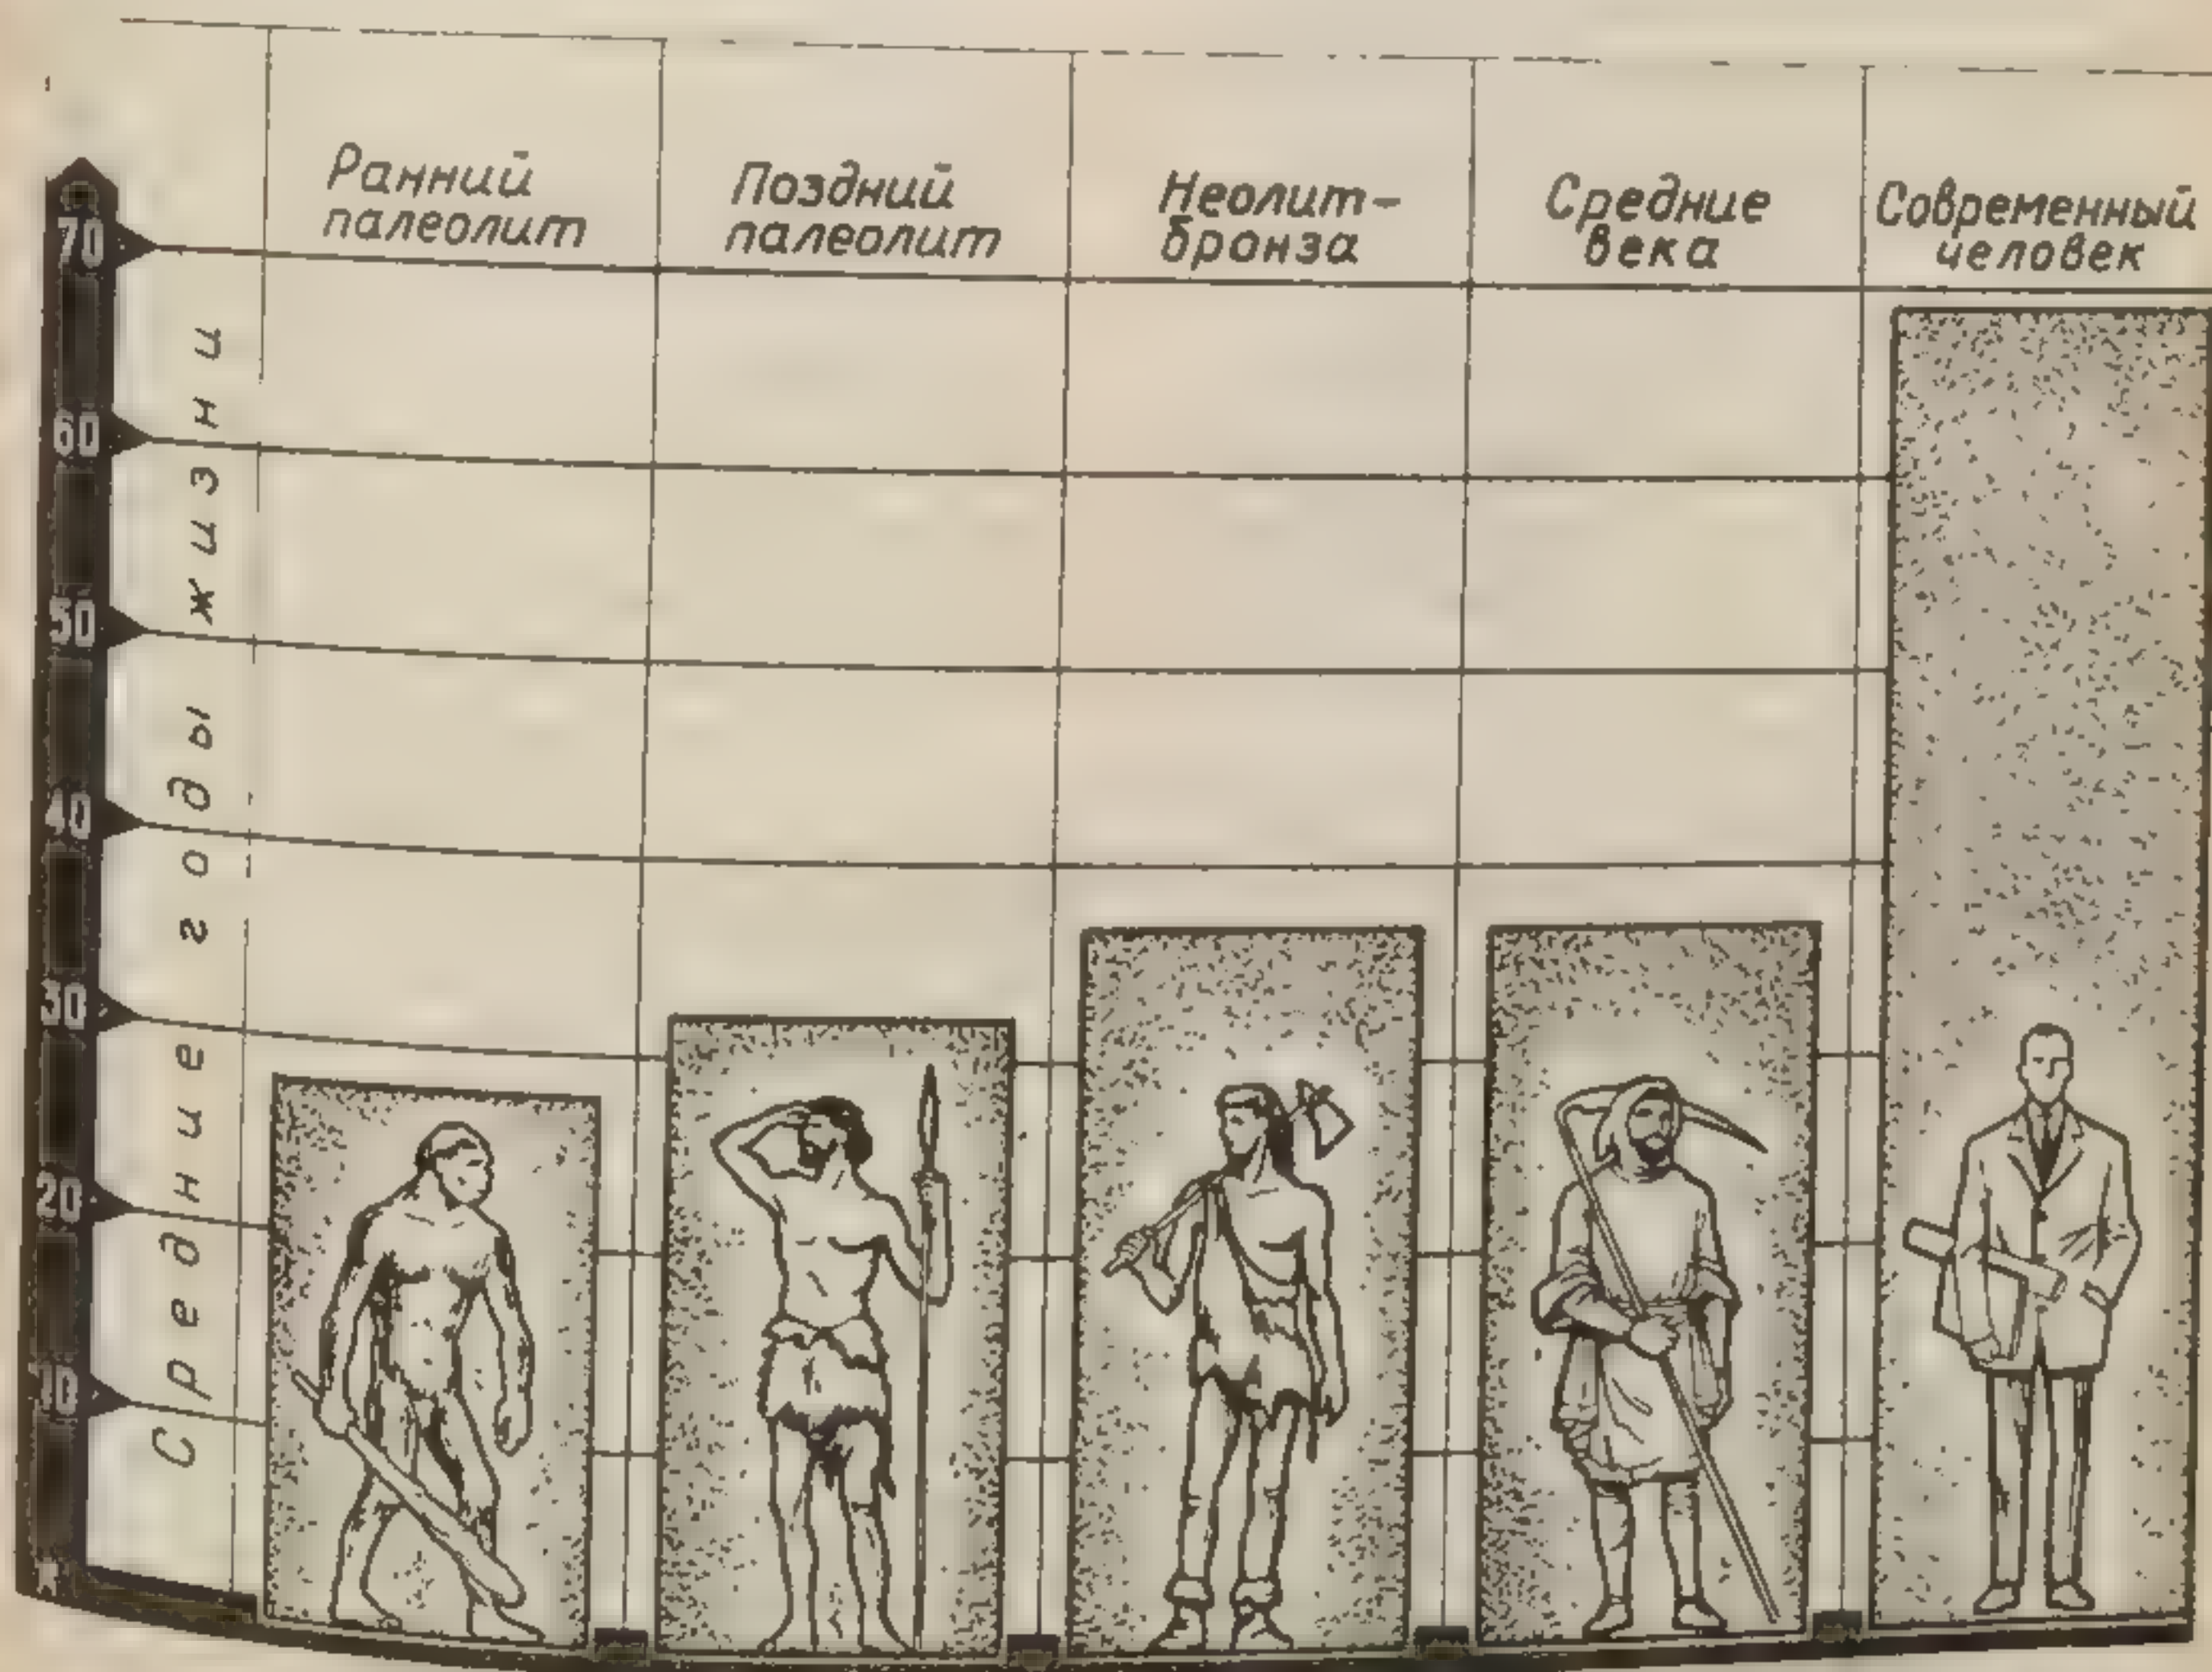 Ранний
палеолит
Поздний
палеолит
Неолит-
бронза
Средние
века
Современный
человек
70
60
50
40
30
20
10
Средние годы жизни